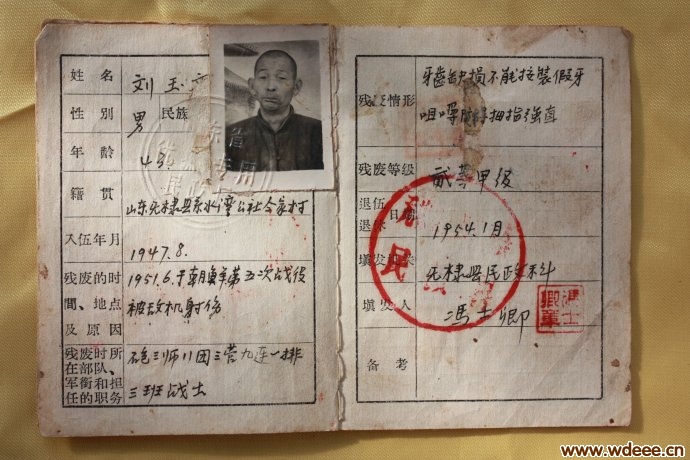 姓名 刘玉
性别 男 民族
年龄 43
籍贯 山东无棣县 水湾公社 村
入伍年月 1947.8.
残废的时間、地点及原因
1951.6.于朝鲜第五次战役
被敌机射伤
残废时所在部队、军衔和担任的职务
砲三师11团三营九连一排
三班战士
残废情形
牙齒缺損不能按裝假牙
咀嚼障碍拇指強直
残废等级 貳等甲级
退伍退休日期 1954.1月
填发 无棣县民政科
填发人 馮士卿
馮士卿章
备考
www.wdeee.cn